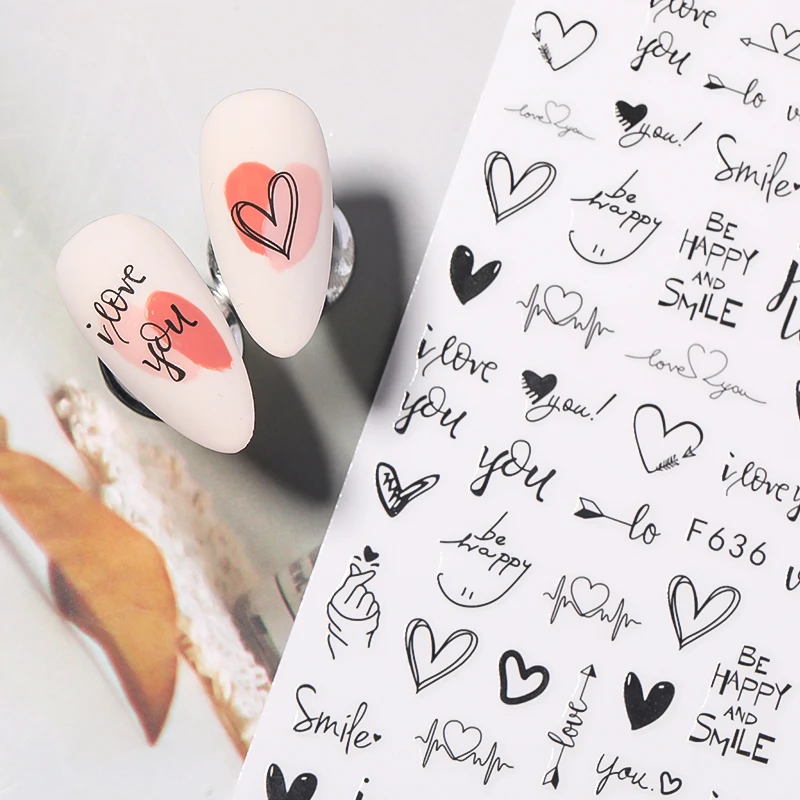 i love
you
i love
you
lo
love you
you!
Smile
be
happy
BE
HAPPY
AND
SMILE
i love
you
love you
you!
i love
you
lo
F636
be
happy
BE
HAPPY
AND
SMILE
Smile
love
you.